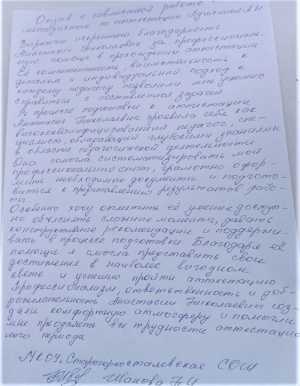 Отзыв о совместной работе с
методистом по аттестации
Выражаю искреннюю благодарность
Анастасии Николаевне за профессиональ-
ную помощь в прохождении аттестации
Её компетентность, внимательность к
деталям и индивидуальный подход к
каждому педагогу позволили мне успешно
справиться с поставленной задачей
В процессе подготовки к аттестации
Анастасия Николаевна проявила себя как
высококвалифицированный педагог, спе-
циалист, обладающий глубокими знаниями
в области педагогической деятельности
Она помогла систематизировать мой
профессиональный опыт, грамотно офор-
мить необходимые документы и подгото-
виться к представлению результатов рабо-
ты.
Особенно хочу отметить её умение доступ-
но объяснять сложные моменты, давать
конструктивные рекомендации и поддержи-
вать в процессе подготовки Благодаря её
помощи я смогла представить свои
достижения в наиболее выгодном
свете и успешно пройти аттестацию
Профессионализм, ответственность и доб-
рожелательность Анастасии Николаевны соз-
дали комфортную атмосферу и помогли
мне преодолеть все трудности аттестацион-
ного периода
МКОУ Старогросталевская СОШ